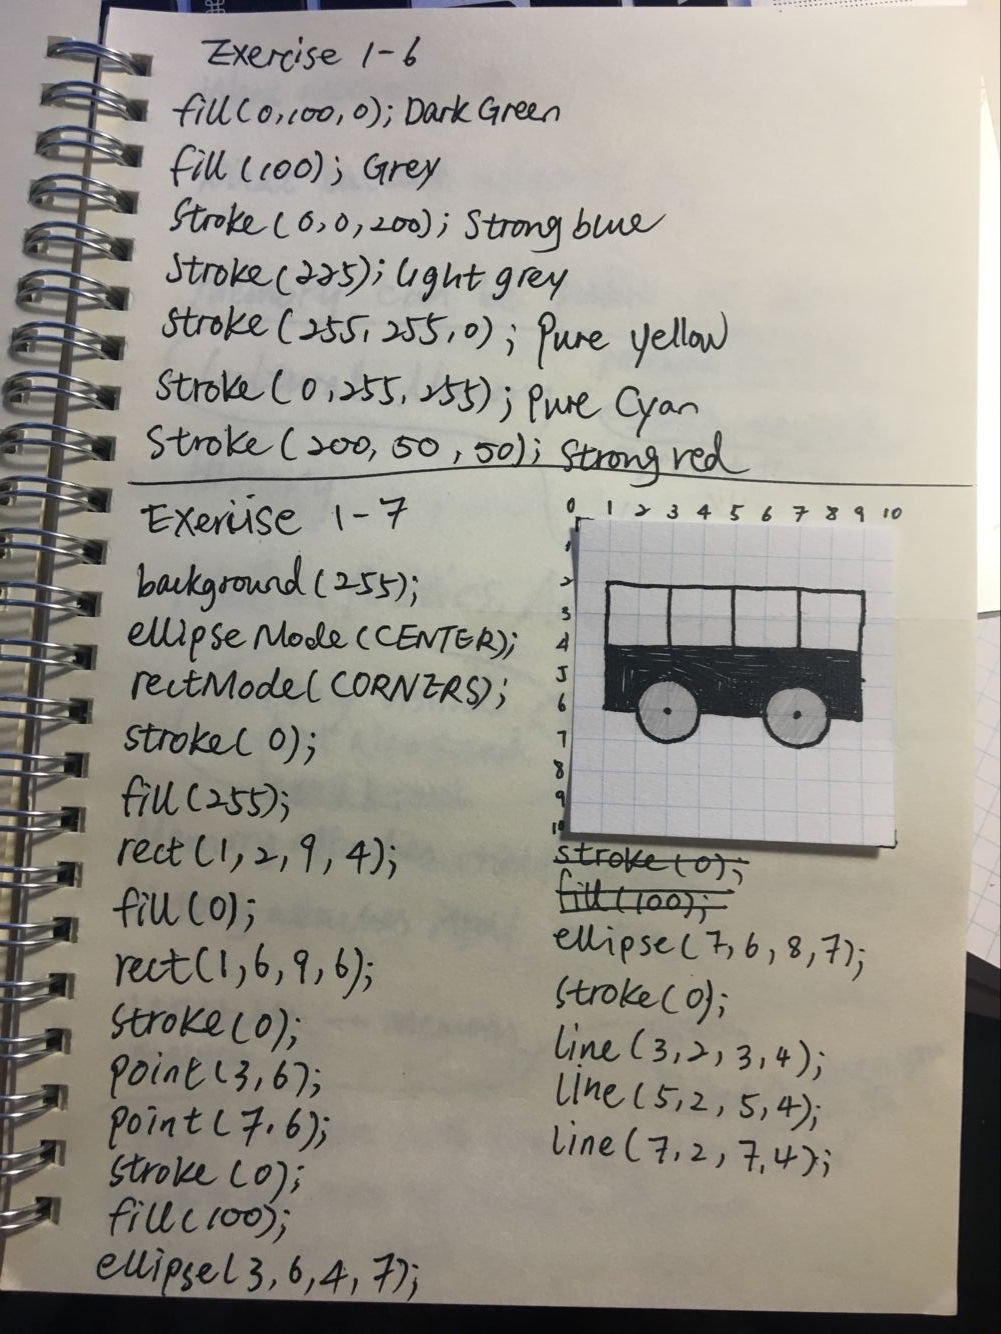 Exercise 1-6
fill(0,100,0); Dark Green
fill(100); Grey
Stroke(0,0,200); Strong blue
Stroke(225); light grey
Stroke(255,255,0); Pure yellow
Stroke(0,255,255); Pure Cyan
Stroke(200,50,50); Strong red
Exercise 1-7
background(255);
ellipseMode(CENTER);
rectMode(CORNERS);
stroke(0);
fill(255);
rect(1,2,9,4);
fill(0);
rect(1,6,9,6);
stroke(0);
point(3,6);
point(7,6);
stroke(0);
fill(100);
ellipse(3,6,4,7);
0 1 2 3 4 5 6 7 8 9 10
1
2
3
4
5
6
7
8
9
10
stroke(0);
fill(100);
ellipse(7,6,8,7);
stroke(0);
line(3,2,3,4);
line(5,2,5,4);
line(7,2,7,4);